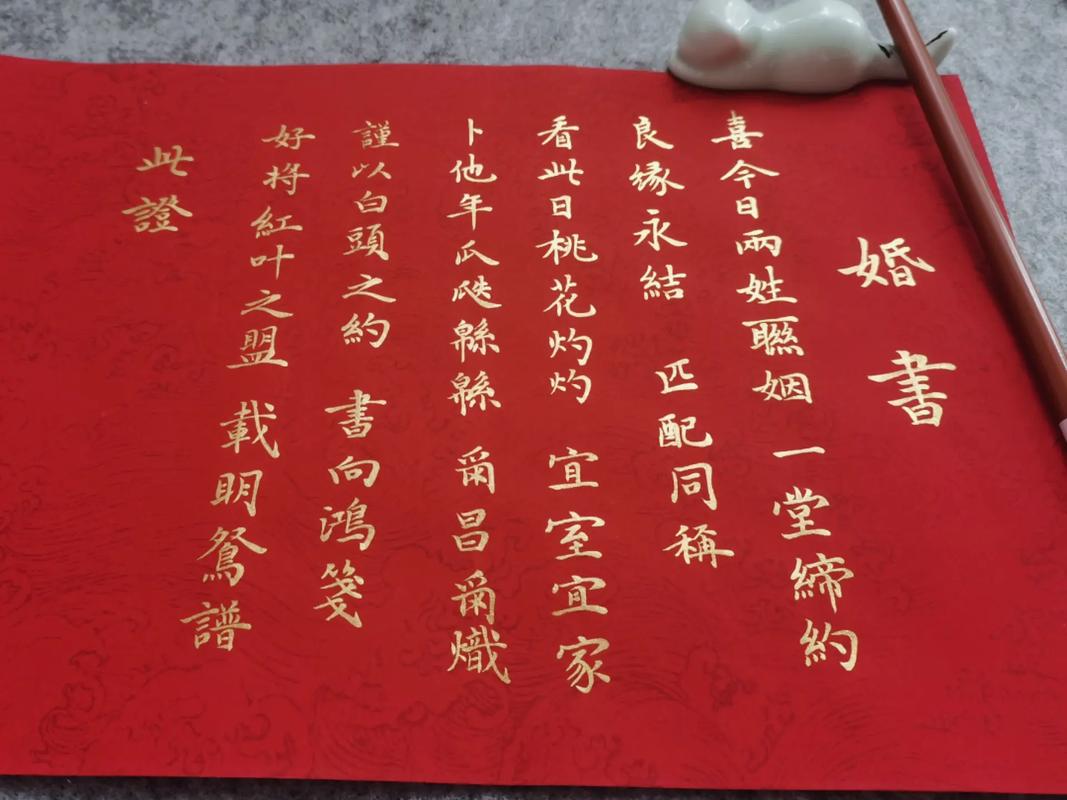 婚書
喜今日兩姓聯姻 一堂締約
良緣永結 匹配同稱
看此日桃花灼灼 宜室宜家
卜他年瓜瓞緜緜 爾昌爾熾
謹以白頭之約 書向鴻箋
好将紅叶之盟 載明鴛譜
此證